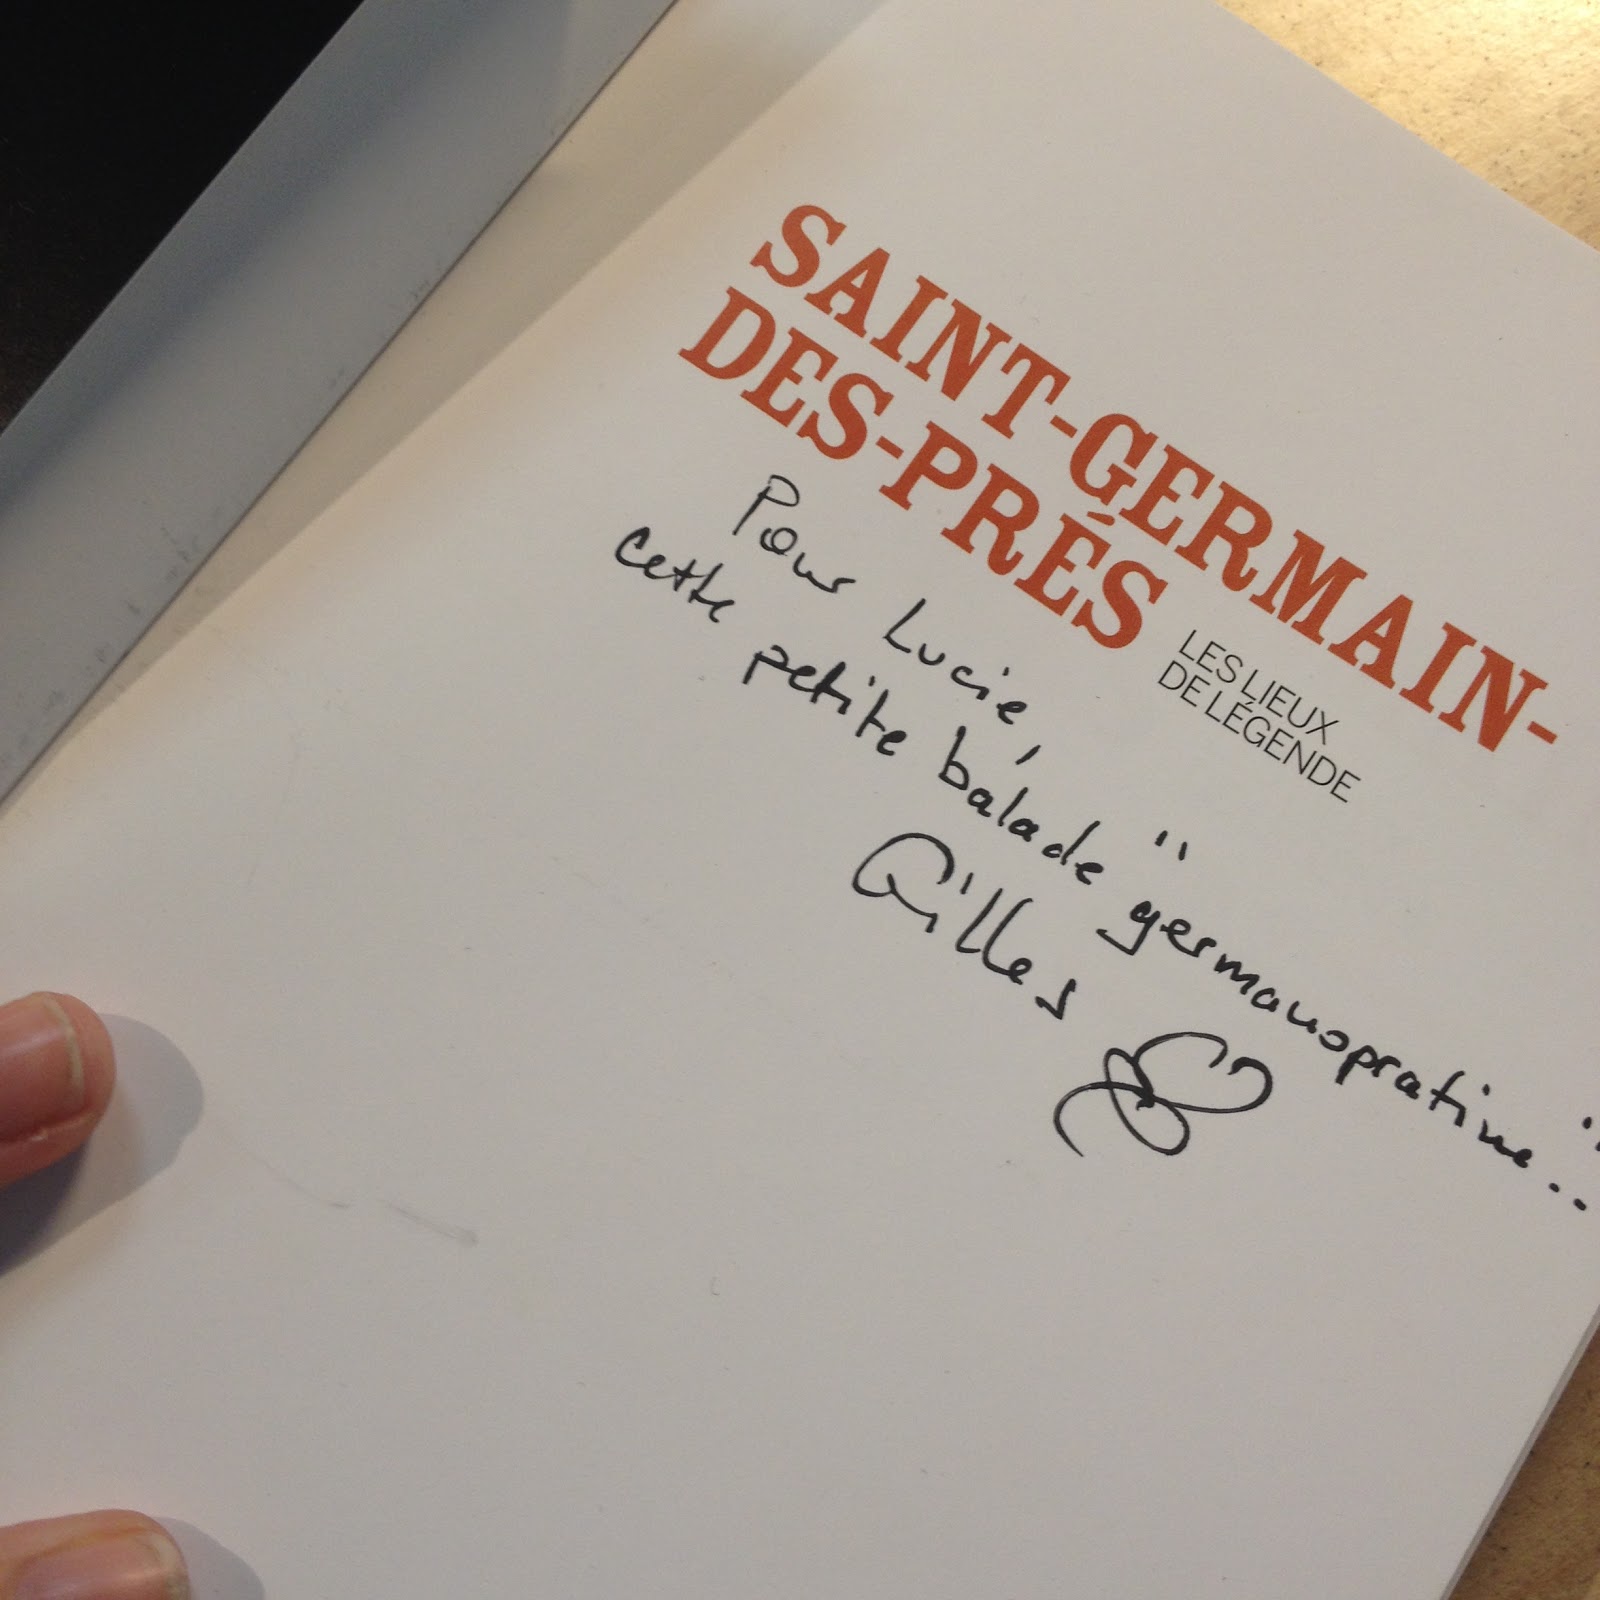 SAINT-GERMAIN-
DES-PRÉS
LES LIEUX
DE LÉGENDE
Pour Lucie,
cette petite balade "germanopratine.."
Gilles